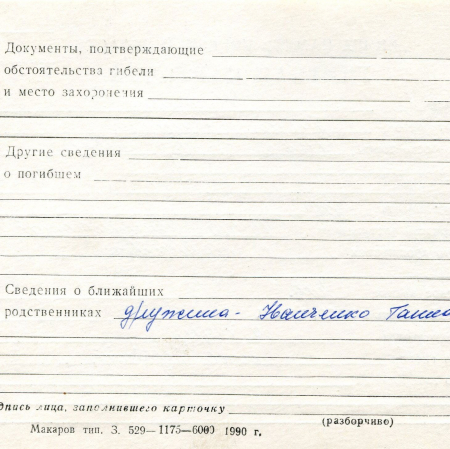 Документы, подтверждающие
обстоятельства гибели
и место захоронения
Другие сведения
о погибшем
Сведения о ближайших
родственниках дружина -
дпись лица, заполнившего карточку
(разборчиво)
Макаров тип. З. 529—1175—6000 1990 г.